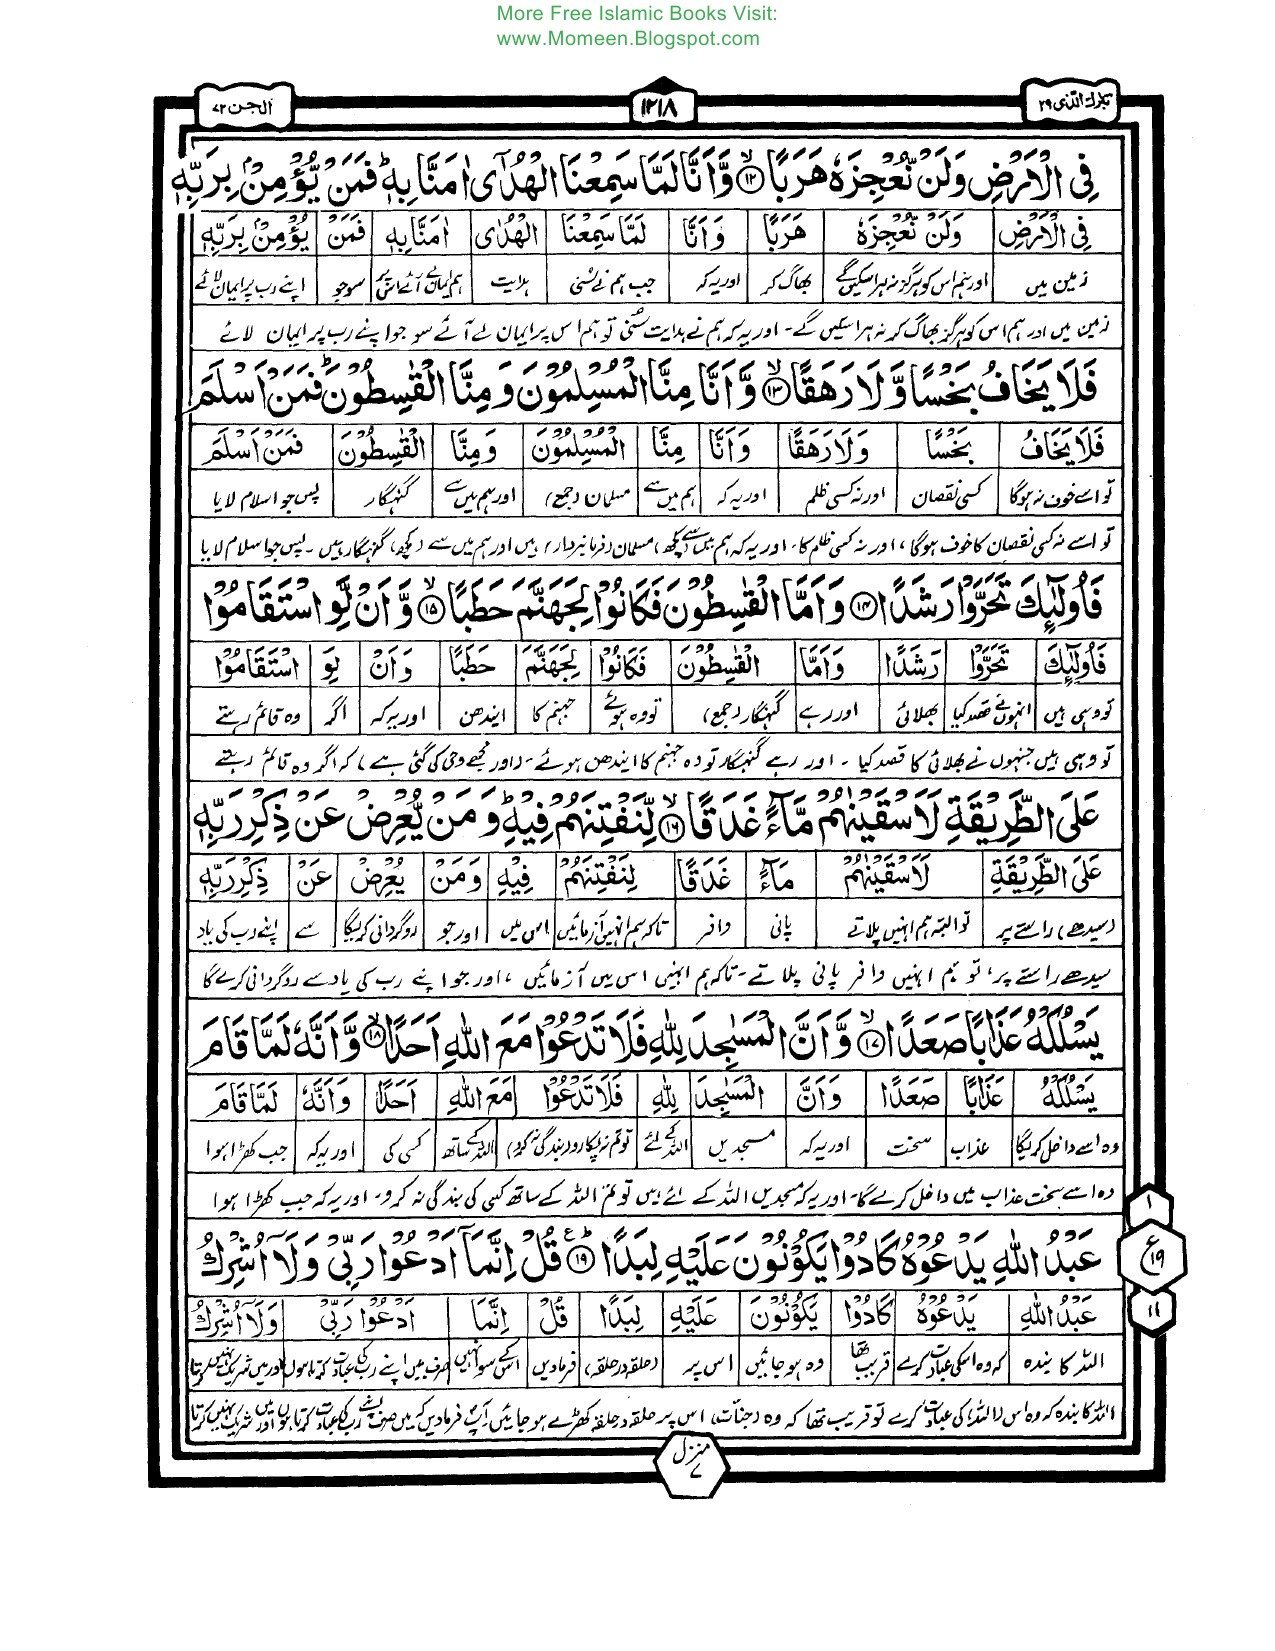 More Free Islamic Books Visit:
www.Momeen.Blogspot.com
تبارك الذی ۲۹
۱۲۱۸
الجن ۷۲
فِی الْاَرْضِ وَلَنْ نُّعْجِزَهٗ هَرَبًا ۙ۱۲ وَّاَنَّا لَمَّا سَمِعْنَا الْهُدٰۤی اٰمَنَّا بِهٖ ؕ فَمَنْ یُّؤْمِنْۢ بِرَبِّهٖ
فِی الْاَرْضِ وَلَنْ نُّعْجِزَهٗ هَرَبًا وَاَنَّا لَمَّا سَمِعْنَا الْهُدٰی اٰمَنَّا بِهٖ فَمَنْ یُؤْمِنْۢ بِرَبِّهٖ
زمین میں اور ہم اس کو ہرگز نہ ہرا سکیں گے بھاگ کر اور یہ کہ جب ہم نے سُنی ہدایت ہم ایمان لے آئے اس پر سو جو اپنے رب پر ایمان لائے
زمین میں اور ہم اس کو ہرگز بھاگ کر نہ ہرا سکیں گے۔ اور یہ کہ ہم نے ہدایت سُنی تو ہم اس پر ایمان لے آئے سو جو اپنے رب پر ایمان لائے
فَلَا یَخَافُ بَخْسًا وَّلَا رَهَقًا ۙ۱۳ وَّاَنَّا مِنَّا الْمُسْلِمُوْنَ وَمِنَّا الْقٰسِطُوْنَ ؕ فَمَنْ اَسْلَمَ
فَلَا یَخَافُ بَخْسًا وَلَا رَهَقًا وَاَنَّا مِنَّا الْمُسْلِمُوْنَ وَمِنَّا الْقٰسِطُوْنَ فَمَنْ اَسْلَمَ
تو اسے خوف نہ ہوگا کسی نقصان اور نہ کسی ظلم اور یہ کہ ہم میں سے مسلمان (جمع) اور ہم میں سے گنہگار پس جو اسلام لایا
تو اسے نہ کسی نقصان کا خوف ہوگا، اور نہ کسی ظلم کا۔ اور یہ کہ ہم میں سے (کچھ) مسلمان (فرمانبردار) ہیں اور ہم میں سے (کچھ) گنہگار ہیں۔ پس جو اسلام لایا
فَاُولٰٓئِكَ تَحَرَّوْا رَشَدًا ۱۴ وَاَمَّا الْقٰسِطُوْنَ فَكَانُوْا لِجَهَنَّمَ حَطَبًا ۙ۱۵ وَّاَنْ لَّوِ اسْتَقَامُوْا
فَاُولٰٓئِكَ تَحَرَّوْا رَشَدًا وَاَمَّا الْقٰسِطُوْنَ فَكَانُوْا لِجَهَنَّمَ حَطَبًا وَاَنْ لَوِ اسْتَقَامُوْا
تو وہی ہیں انہوں نے قصد کیا بھلائی اور رہے گنہگار (جمع) تو وہ ہوئے جہنم کا ایندھن اور یہ کہ اگر وہ قائم رہتے
تو وہی ہیں جنہوں نے بھلائی کا قصد کیا ۔ اور رہے گنہگار تو وہ جہنم کا ایندھن ہوئے۔ (اور مجھے وحی کی گئی ہے) کہ اگر وہ قائم رہتے
عَلَی الطَّرِیْقَةِ لَاَسْقَیْنٰهُمْ مَّآءً غَدَقًا ۙ۱۶ لِّنَفْتِنَهُمْ فِیْهِ ؕ وَمَنْ یُّعْرِضْ عَنْ ذِكْرِ رَبِّهٖ
عَلَی الطَّرِیْقَةِ لَاَسْقَیْنٰهُمْ مَآءً غَدَقًا لِنَفْتِنَهُمْ فِیْهِ وَمَنْ یُعْرِضْ عَنْ ذِكْرِ رَبِّهٖ
(سیدھے) راستے پر تو البتہ ہم انہیں پلاتے پانی وافر تاکہ ہم انہیں آزمائیں اس میں اور جو روگردانی کریگا سے اپنے رب کی یاد
سیدھے راستے پر، تو ہم انہیں وافر پانی پلاتے۔ تاکہ ہم انہیں اس میں آزمائیں، اور جو اپنے رب کی یاد سے روگردانی کرے گا
یَسْلُكْهُ عَذَابًا صَعَدًا ۙ۱۷ وَّاَنَّ الْمَسٰجِدَ لِلّٰهِ فَلَا تَدْعُوْا مَعَ اللّٰهِ اَحَدًا ۙ۱۸ وَّاَنَّهٗ لَمَّا قَامَ
یَسْلُكْهُ عَذَابًا صَعَدًا وَاَنَّ الْمَسٰجِدَ لِلّٰهِ فَلَا تَدْعُوْا مَعَ اللّٰهِ اَحَدًا وَاَنَّهٗ لَمَّا قَامَ
وہ اسے داخل کریگا عذاب سخت اور یہ کہ مسجدیں اللہ کے لئے تو تم نہ پکارو (بندگی نہ کرو) اللہ کے ساتھ کسی کی اور یہ کہ جب کھڑا ہوا
وہ اسے سخت عذاب میں داخل کرے گا۔ اور یہ کہ مسجدیں اللہ کے لئے ہیں تو تم اللہ کے ساتھ کسی کی بندگی نہ کرو۔ اور یہ کہ جب کھڑا ہوا
عَبْدُ اللّٰهِ یَدْعُوْهُ كَادُوْا یَكُوْنُوْنَ عَلَیْهِ لِبَدًا ؕ۱۹ قُلْ اِنَّمَاۤ اَدْعُوْا رَبِّیْ وَلَاۤ اُشْرِكُ
عَبْدُ اللّٰهِ یَدْعُوْهُ كَادُوْا یَكُوْنُوْنَ عَلَیْهِ لِبَدًا قُلْ اِنَّمَا اَدْعُوْا رَبِّیْ وَلَاۤ اُشْرِكُ
اللہ کا بندہ کہ وہ اسکی عبادت کرے قریب تھا وہ ہو جائیں اس پر (حلقہ در حلقہ) فرما دیں اسکے سوا نہیں صرف میں اپنے رب کی عبادت کرتا ہوں اور میں شریک نہیں کرتا
اللہ کا بندہ کہ وہ اس (اللہ) کی عبادت کرے تو قریب تھا کہ وہ (جنات) اس پر حلقہ در حلقہ کھڑے ہو جائیں آپ فرما دیں کہ میں صرف اپنے رب کی عبادت کرتا ہوں اور میں شریک نہیں کرتا
۱
ع ۱۹
۱۱
منزل ۷